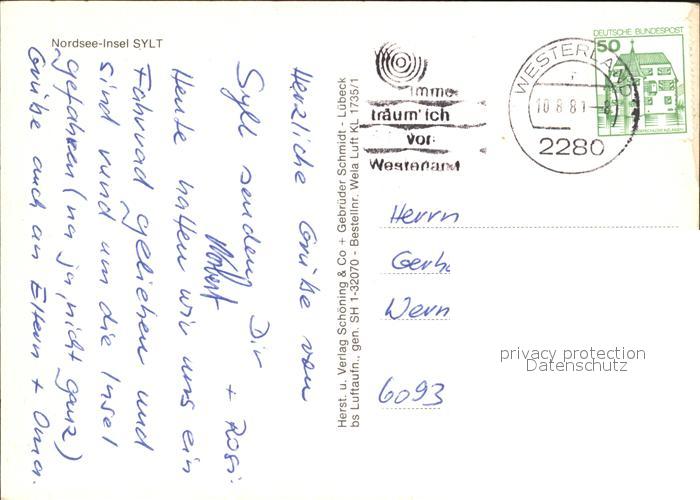 Nordsee-Insel SYLT
Herzliche Grüße von
Sylt senden Dir
Norbert + Rosi.
Heute hatten wir uns ein
Fahrrad geliehen und
sind rund um die Insel
gefahren (na ja, nicht ganz)
Grüße auch an Eltern + Oma.
Herst. u. Verlag Schöning & Co + Gebrüder Schmidt - Lübeck
bs Luftaufn., gen. SH 1-32070 - Bestellnr. Wela Luft KL 1735/1
imme
träum' ich
vor
Westerland
WESTERLAND
10.8.81
2280
DEUTSCHE BUNDESPOST
50
Herrn
Gerh
Wern
6093
privacy protection
Datenschutz